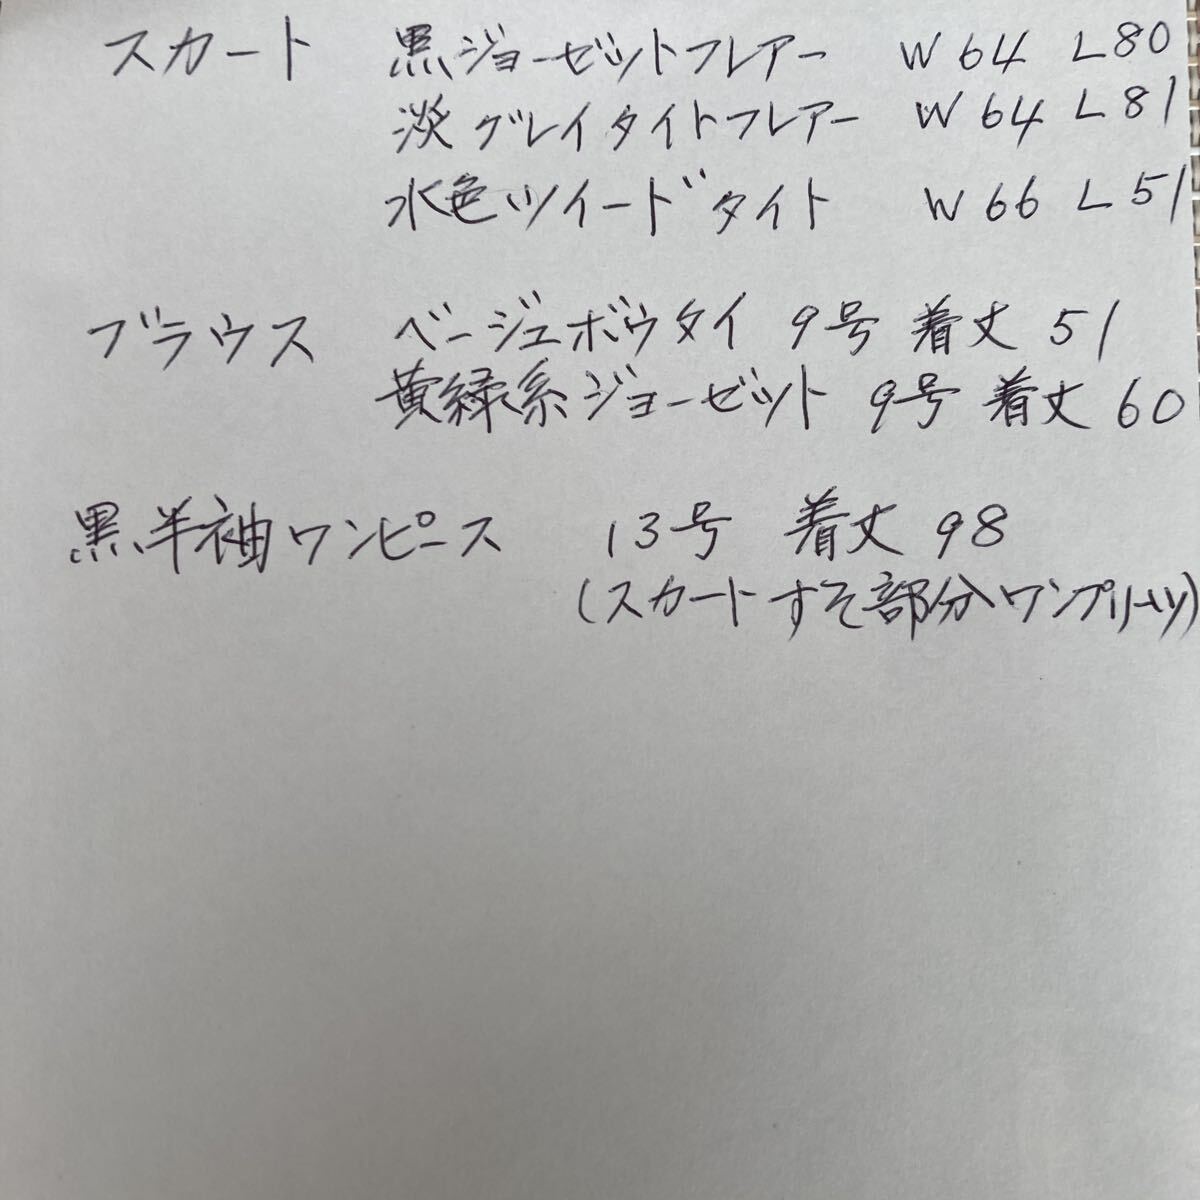 スカート 黒ジョーゼットフレアー W64 L80
淡グレイタイトフレアー W64 L81
水色ツイードタイト W66 L51
ブラウス ベージュボウタイ 9号 着丈 51
黄緑系ジョーゼット 9号 着丈 60
黒半袖ワンピース 13号 着丈 98
(スカートすそ部分ワンプリーツ)